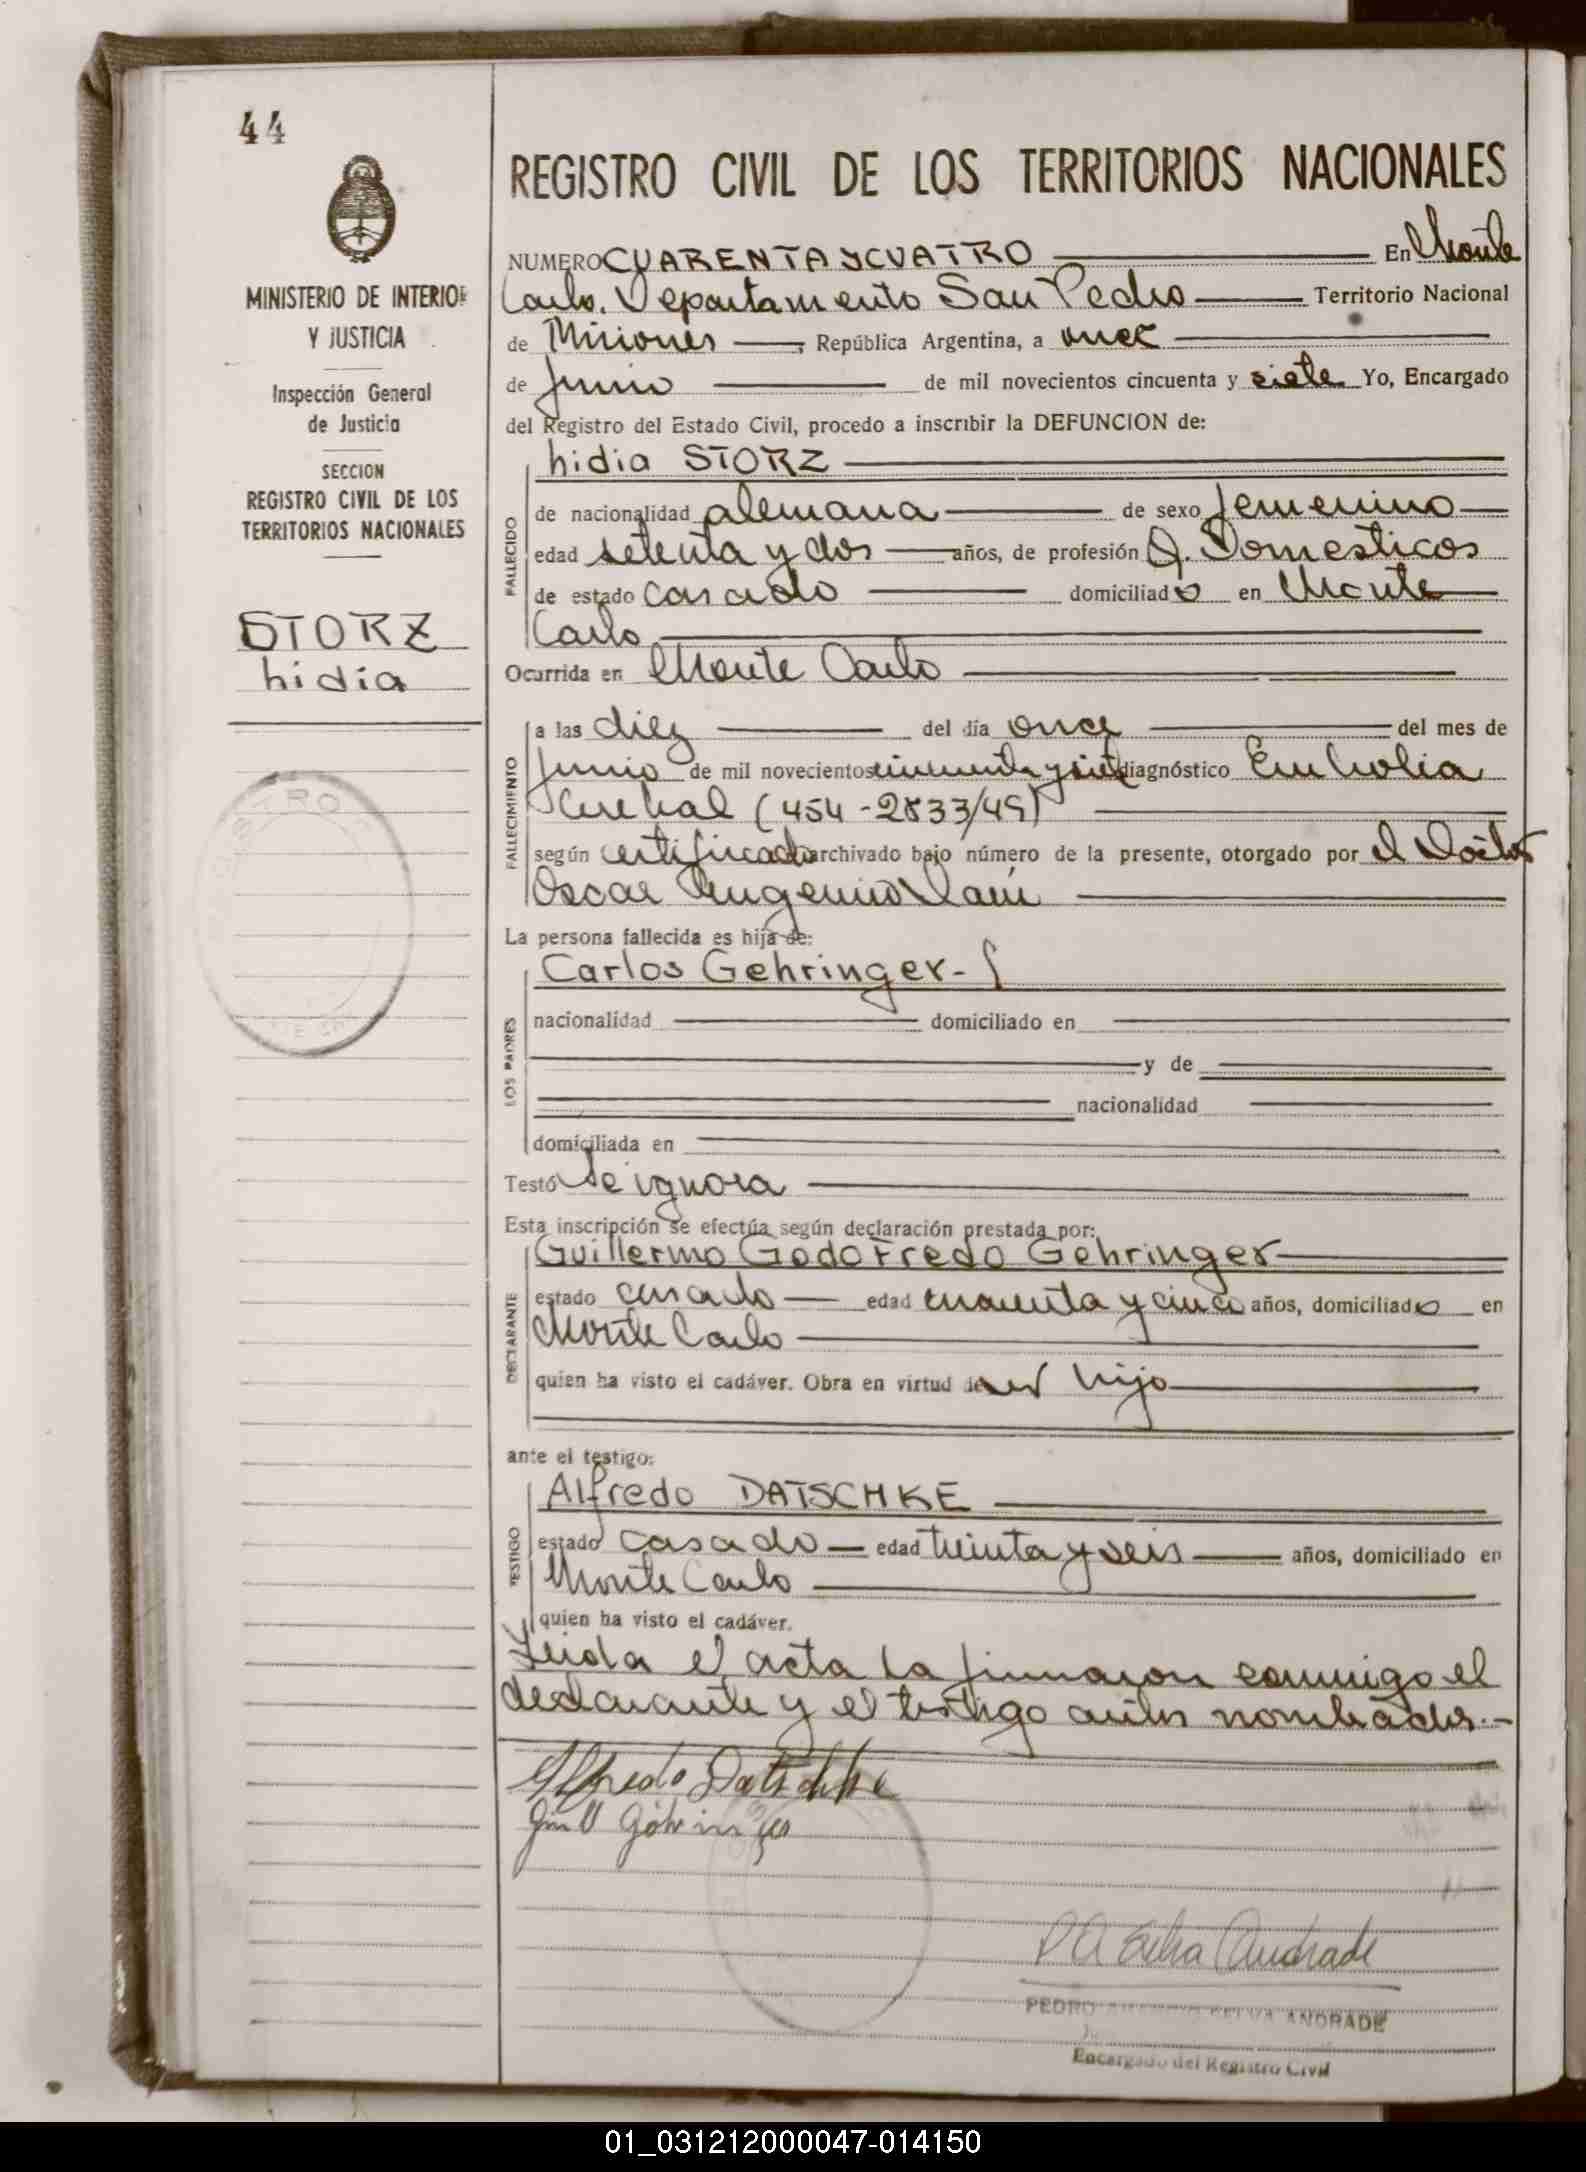 44
MINISTERIO DE INTERIOR
Y JUSTICIA
Inspección General
de Justicia
SECCION
REGISTRO CIVIL DE LOS
TERRITORIOS NACIONALES
STORZ
Lidia
REGISTRO CIVIL DE LOS TERRITORIOS NACIONALES
NUMERO CUARENTA Y CUATRO En Monte
Carlo. Departamento San Pedro Territorio Nacional
de Misiones, República Argentina, a once
de Junio de mil novecientos cincuenta y siete Yo, Encargado
del Registro del Estado Civil, procedo a inscribir la DEFUNCION de:
Lidia STORZ
FALLECIDO
de nacionalidad alemana de sexo femenino
edad setenta y dos años, de profesión Q. Domesticos
de estado casado domiciliado en Monte
Carlo
Ocurrida en Monte Carlo
FALLECIMIENTO
a las diez del día once del mes de
Junio de mil novecientos cincuenta y siete diagnóstico Embolia
Cerebal (454-2833/49)
según certificado archivado bajo número de la presente, otorgado por el Doctor
Oscar Eugenio
La persona fallecida es hija de:
LOS PADRES
Carlos Gehringer-
nacionalidad domiciliado en
y de
nacionalidad
domiciliada en
Testó Se ignora
Esta inscripción se efectúa según declaración prestada por:
DECLARANTE
Guillermo Godofredo Gehringer
estado casado edad cuarenta y cinco años, domiciliado en
Monte Carlo
quien ha visto el cadáver. Obra en virtud de ser hijo
ante el testigo:
TESTIGO
Alfredo DATSCHKE
estado casado edad treinta y seis años, domiciliado en
Monte Carlo
quien ha visto el cadáver.
Leida el acta la firmaron conmigo el
declarante y el testigo antes nombrados.-
Alfredo Datschke
PEDRO SELVA ANDRADE
Encargado del Registro Civil
01_031212000047-014150